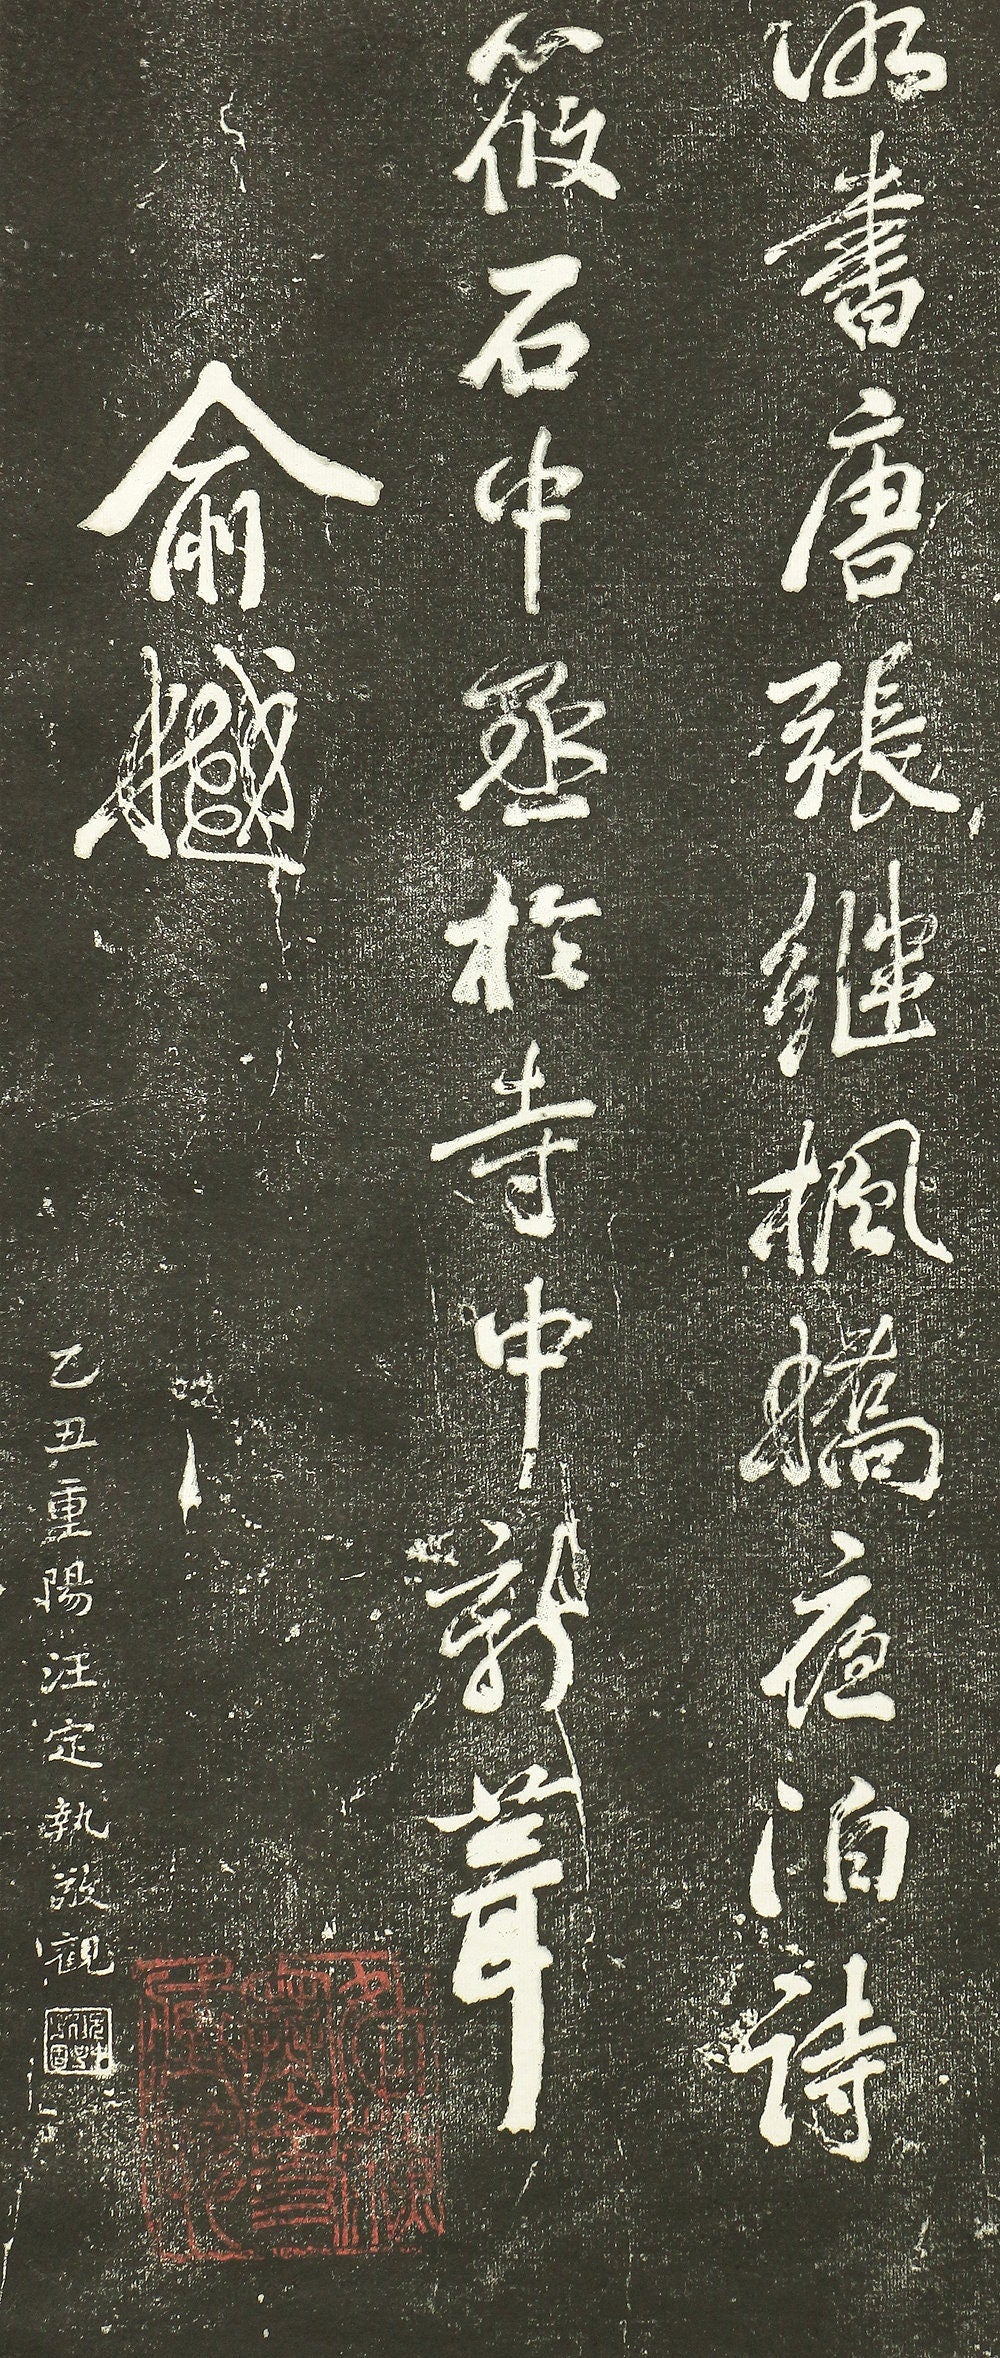 書唐張繼楓橋夜泊詩
筱石中丞於寺中新葺
俞樾
乙丑重陽汪定執敬觀